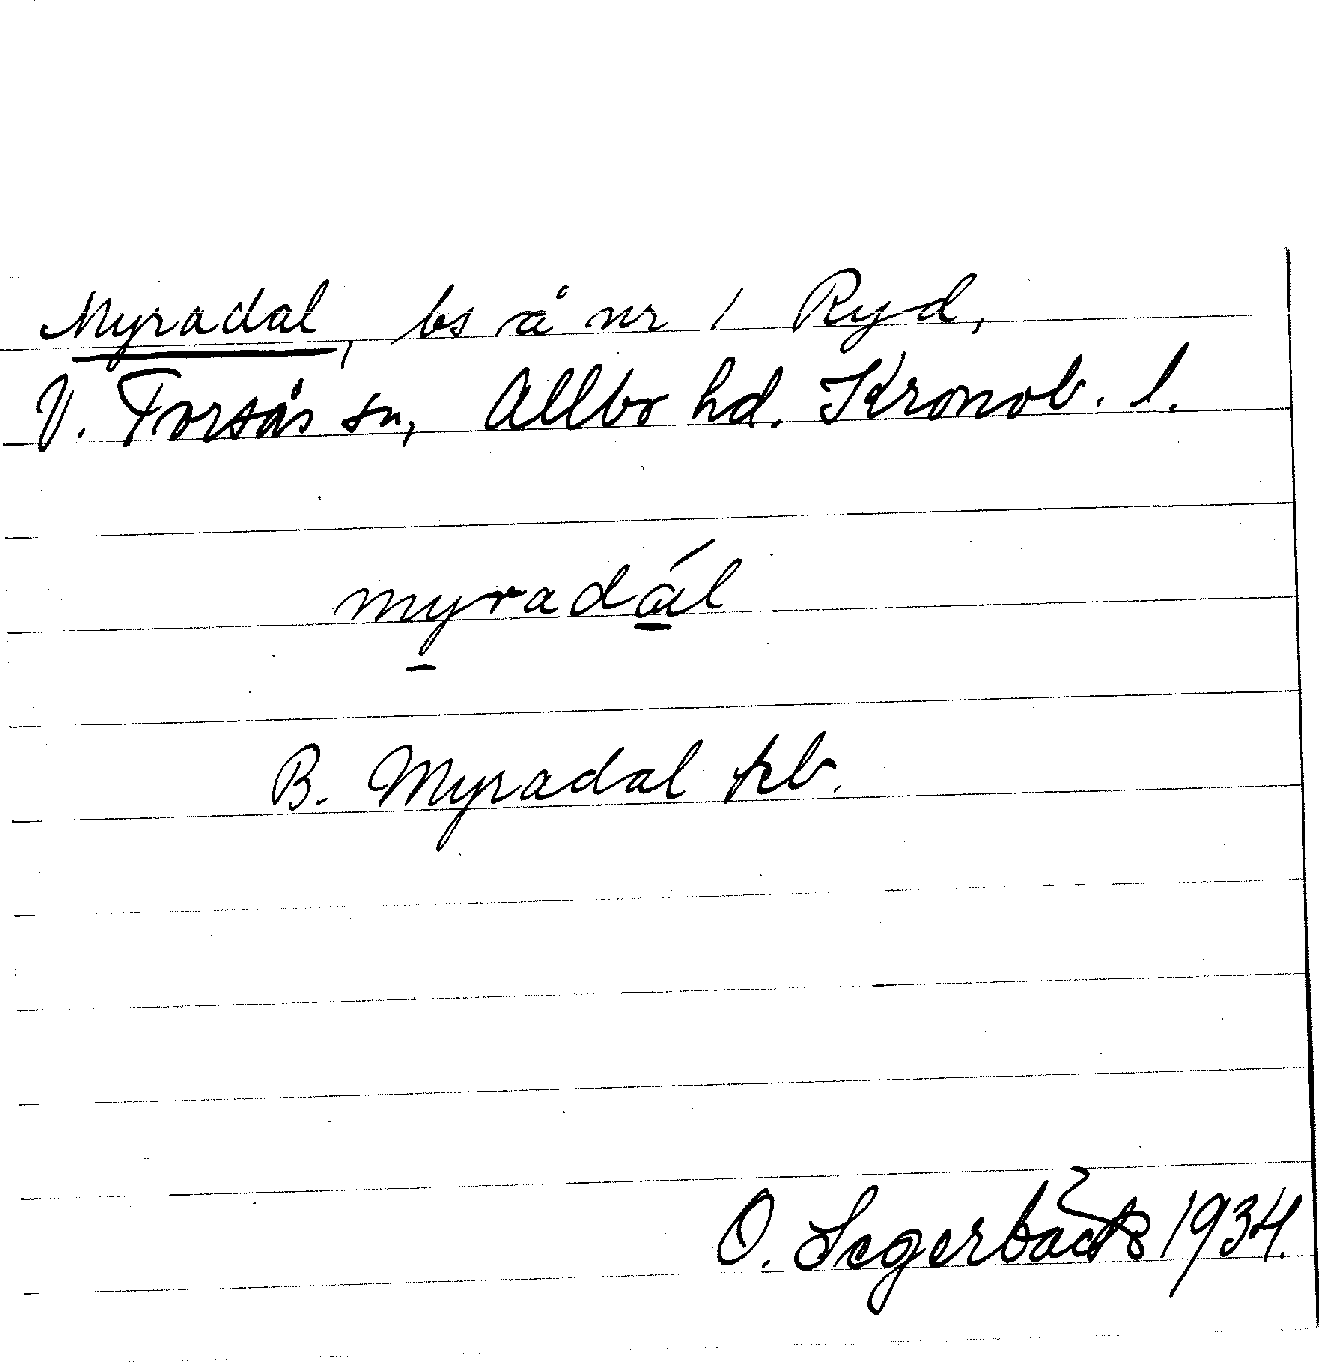 Myradal, bs å nr 1 Ryd,
V. Torsås sn, Allbo hd. Kronob. l.
myradál
B. Myradal hb.
O. Segerbäck 1934.